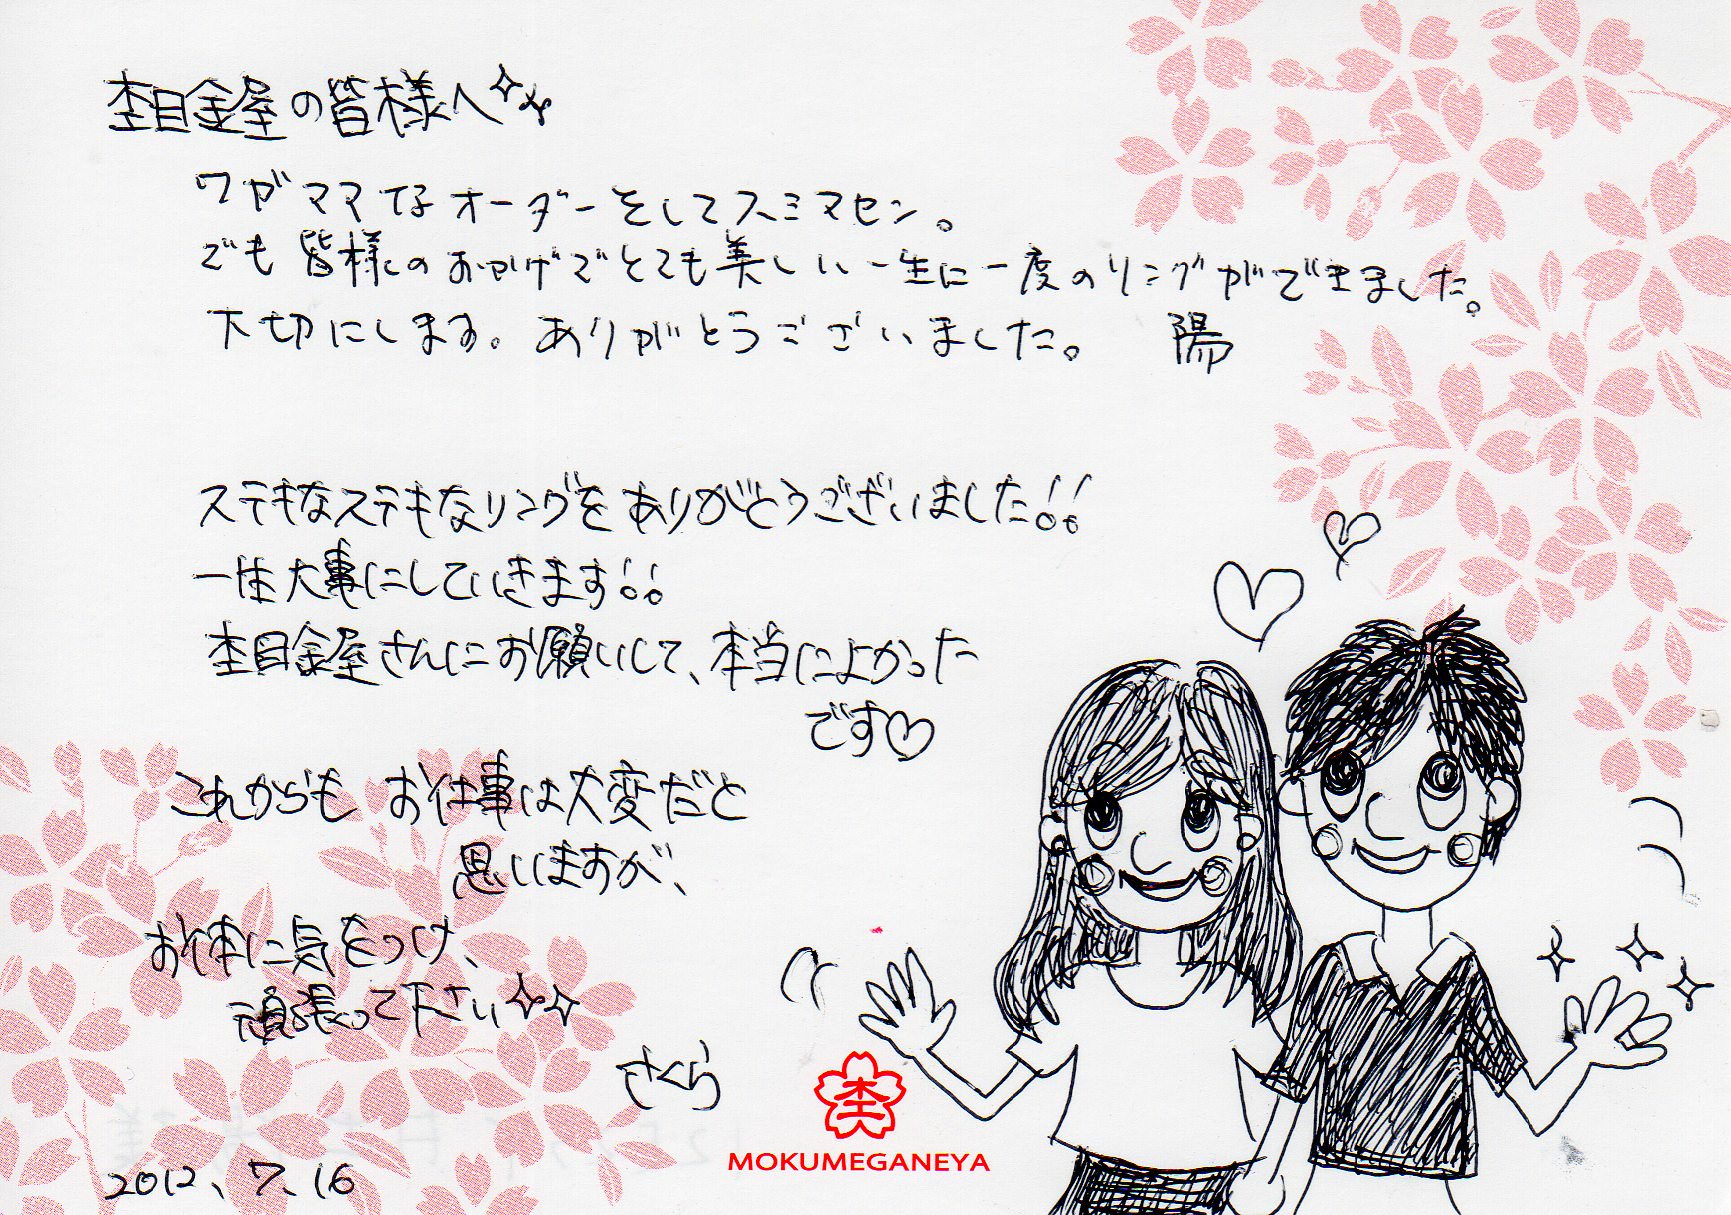 杢目金屋の皆様へ
ワガママなオーダーをしてスミマセン。
でも皆様のおかげでとても美しい一生に一度のリングができました。
大切にします。ありがとうございました。 陽
ステキなステキなリングをありがとうございました!!
一生大事にしていきます!!
杢目金屋さんにお願いして、本当によかった
です♡
これからも お仕事は大変だと
思いますが、
お体に気をつけ、
頑張って下さい
さくら
杢
MOKUMEGANEYA
2012.7.16